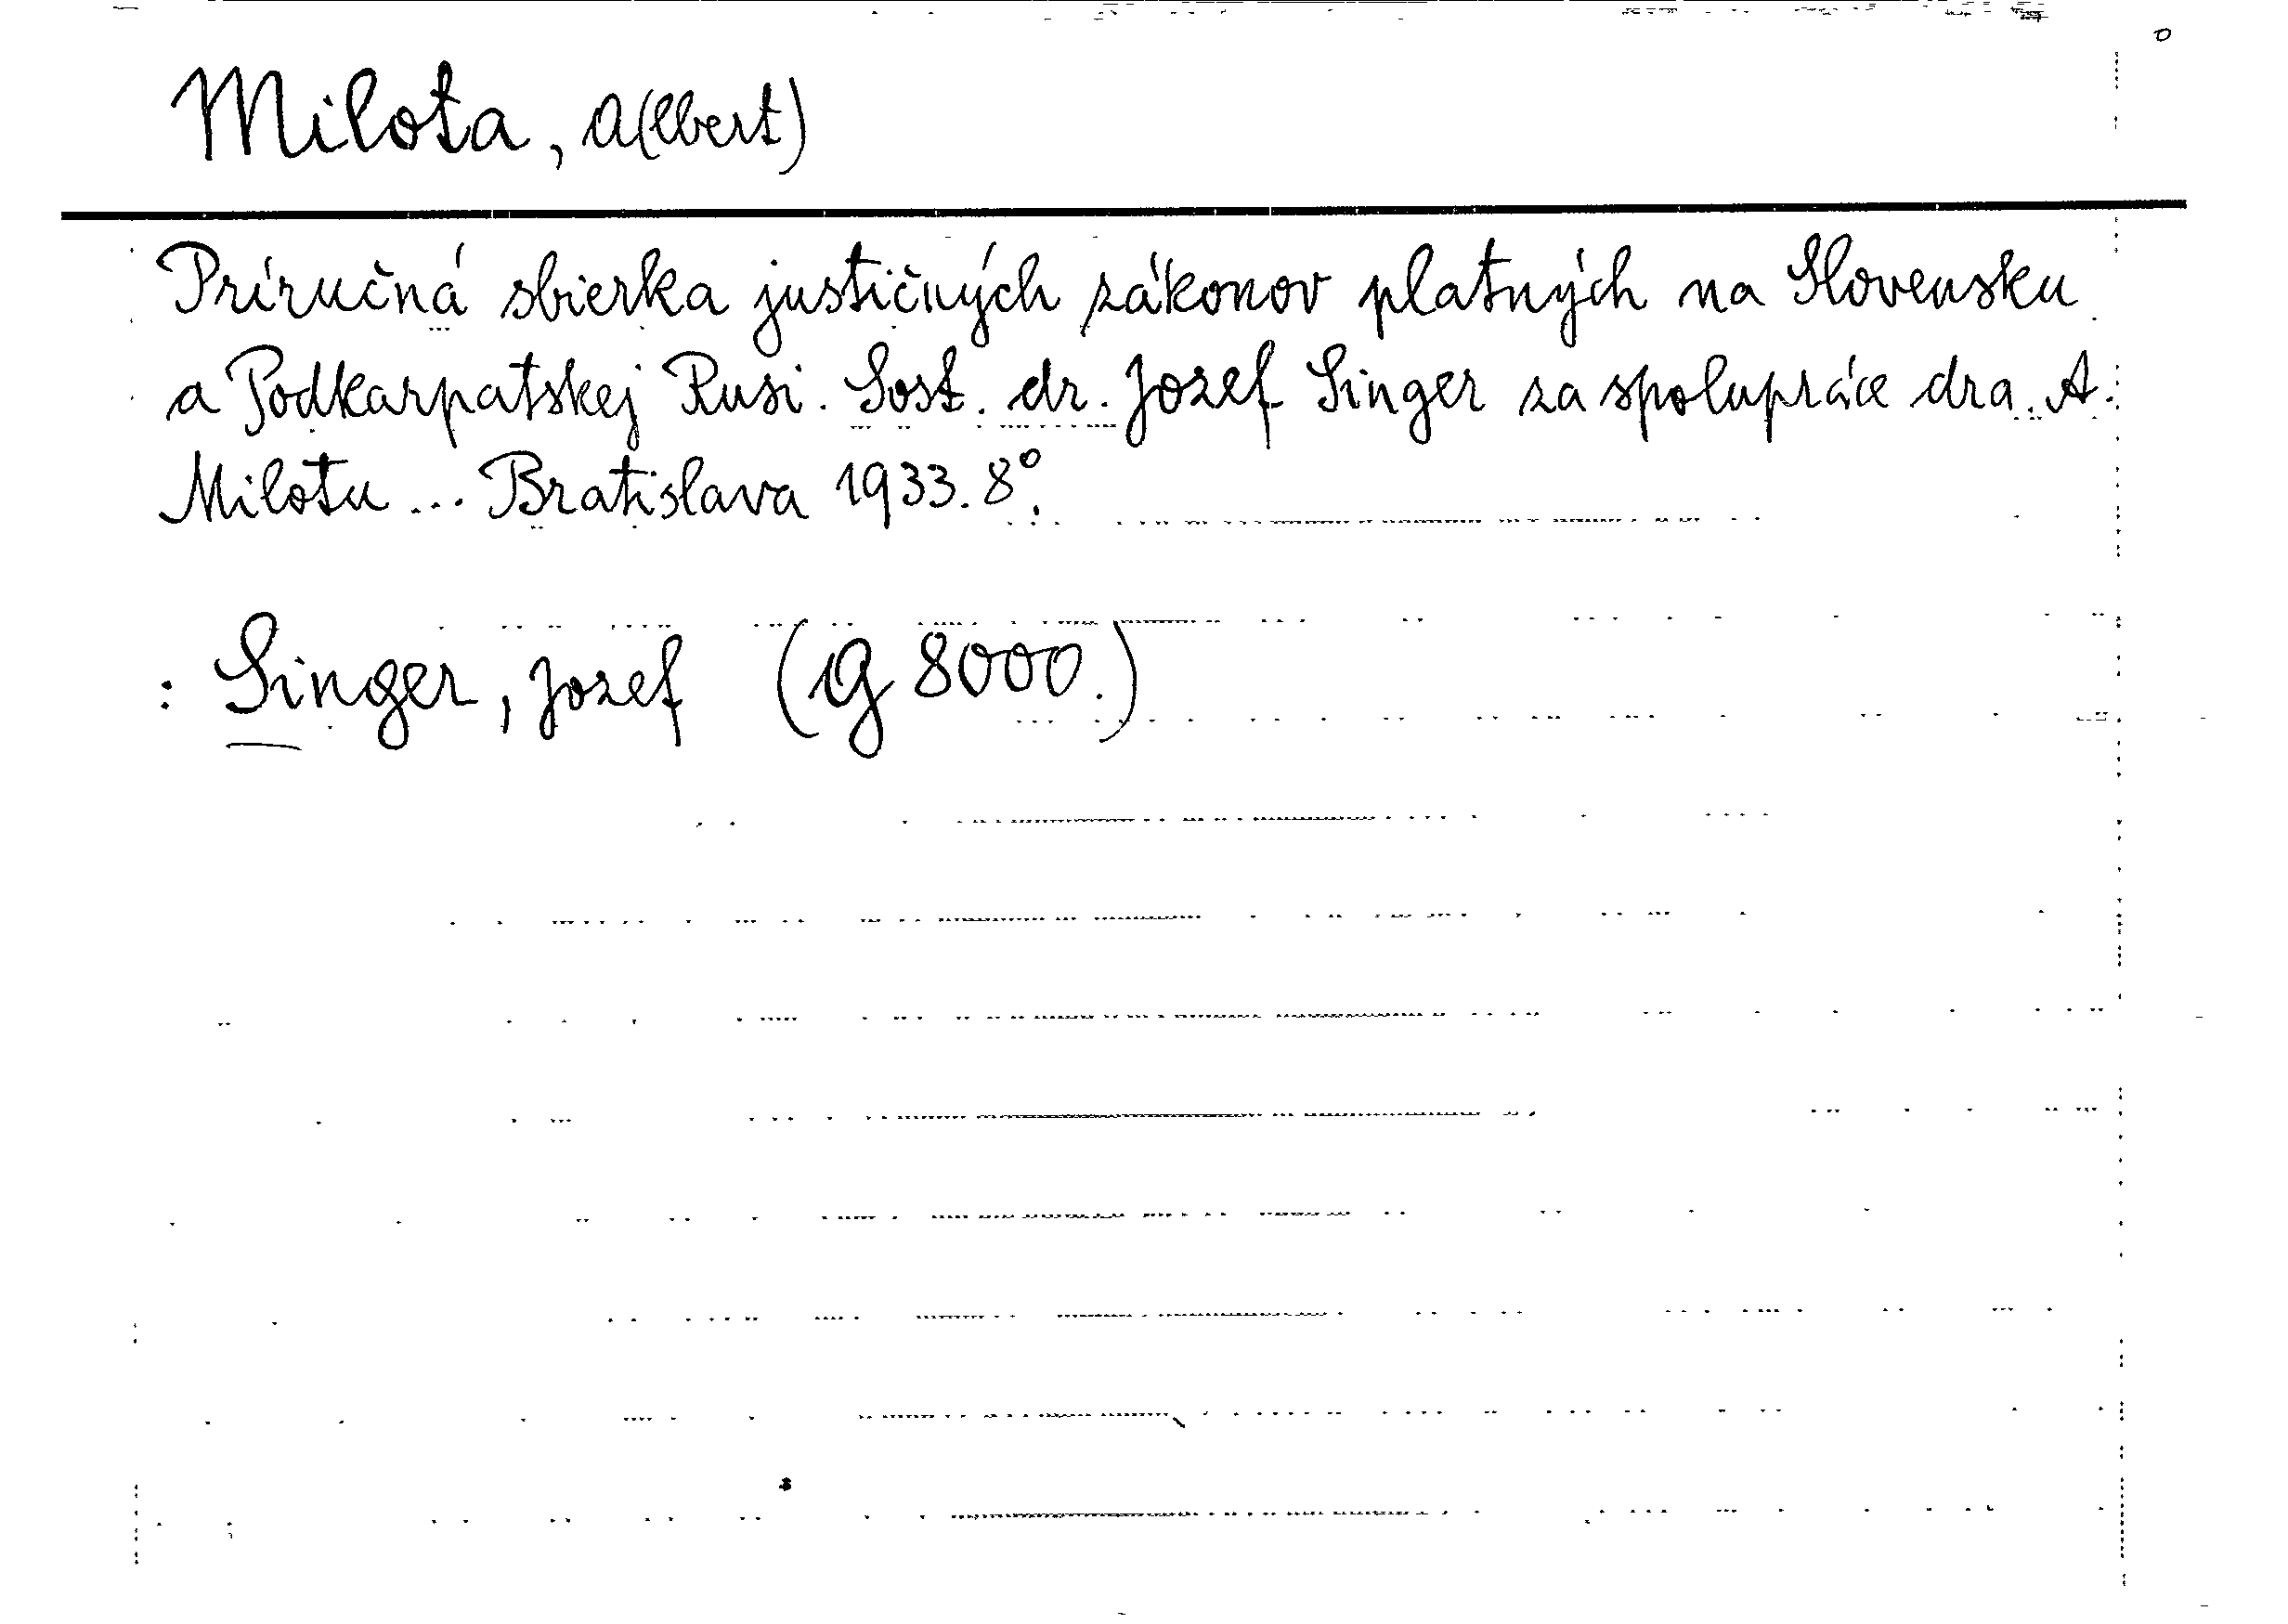 Milota, A(lbert)
Príručná sbierka justičných zákonov platných na Slovensku
a Podkarpatskej Rusi. Sost. dr. Jozef Singer za spolupráce dra. A.
Milotu... Bratislava 1933. 8°.
: Singer, Jozef (G 8000.)